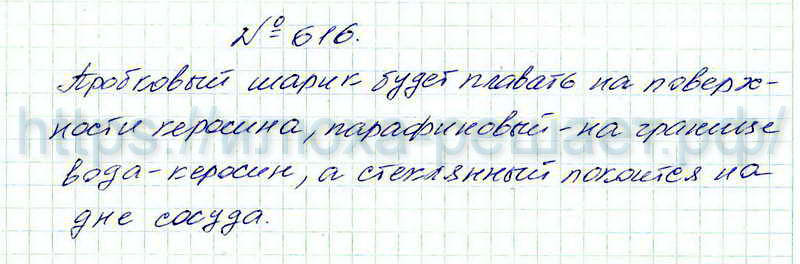 № 616.
Пробковый шарик будет плавать на поверх-
ности керосина, парафиновый - на границе
вода - керосин, а стеклянный покоится на
дне сосуда.